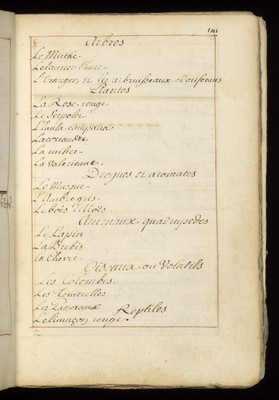 Arbres
Le Mirthe.
Le laurier
L'oranger, et les arbrisseaux odoriferans
Plantes
La Rose rouge
Le Serpolet
L'Enula campana
La coriandre
La
La Valeriene.
Drogues et aromates
Le Musque.
L'Ambregris.
Le bois d'Aloes
Animaux quadrupedes
Le Lapin
La Brebis
La Chevre
Oiseaux ou Volatils
Les Colombes.
Les Tourterelles
Les
Reptiles
Le limaçon rouge.